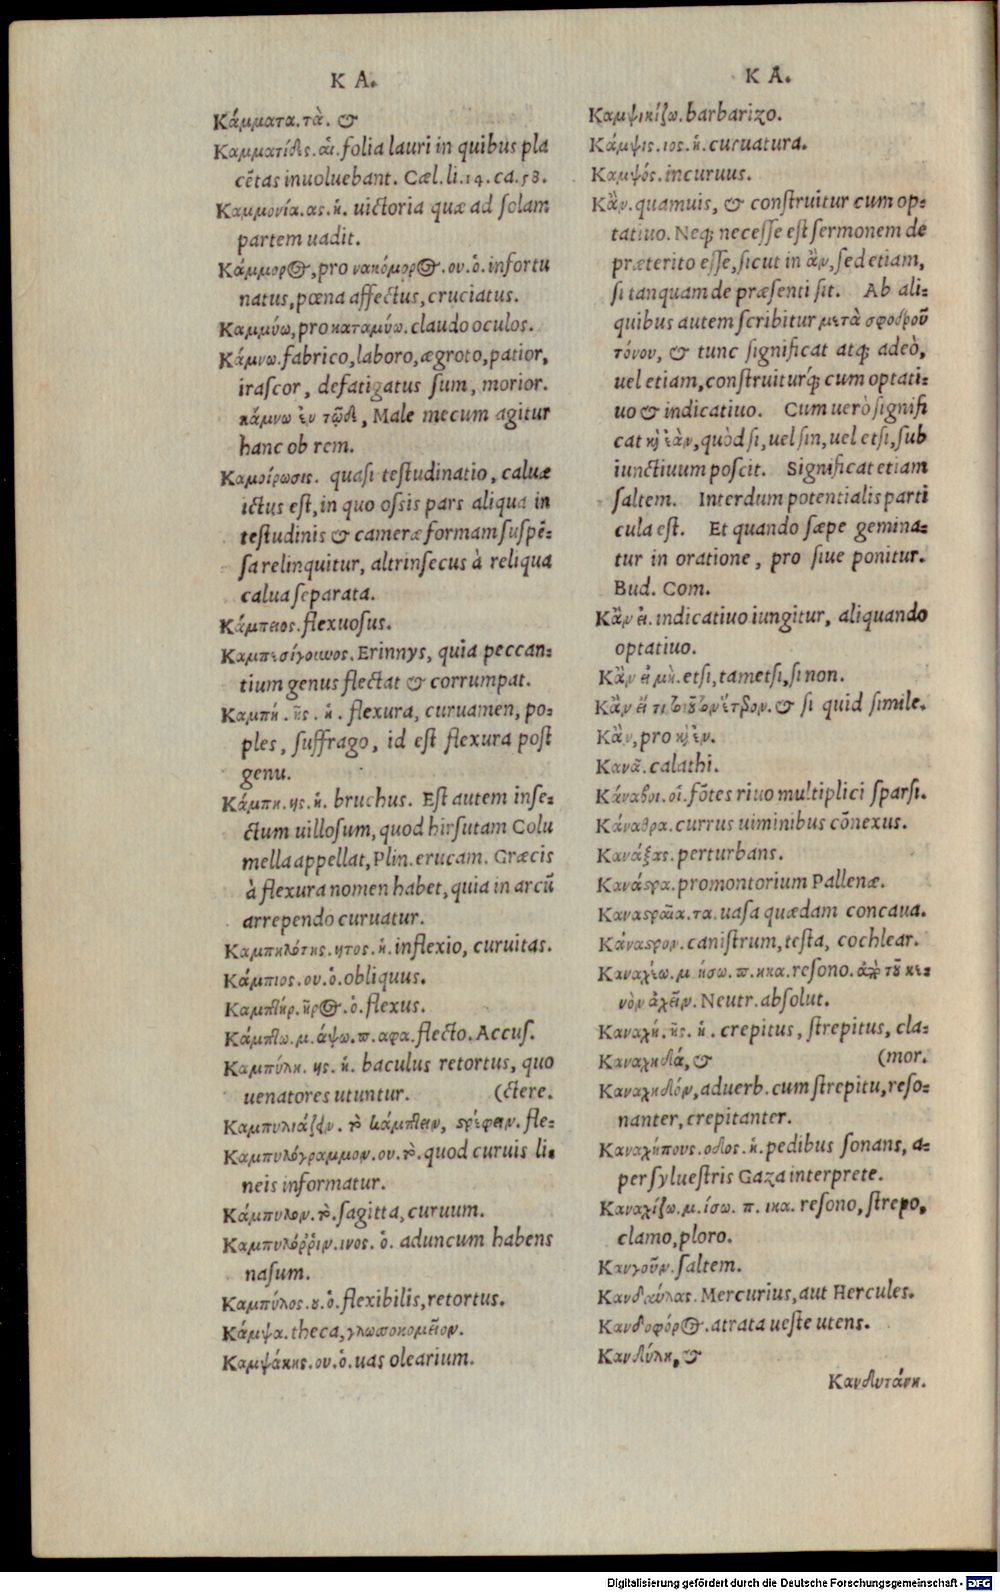 K A.
Κάμματα. τὰ. &
Καμματίδες. αἱ. folia lauri in quibus pla
cẽtas inuoluebant. Cæl. li. 14. ca. 58.
Καμμονία. ας. ἡ. uictoria quæ ad solam
partem uadit.
Κάμμορος, pro κακόμορος. ου. ὁ. infortu
natus, pœna affectus, cruciatus.
Καμμύω, pro καταμύω. claudo oculos.
Κάμνω. fabrico, laboro, ægroto, patior,
irascor, defatigatus sum, morior.
κάμνω ἐν τῷδε, Male mecum agitur
hanc ob rem.
Καμοίρωσις. quasi testudinatio, caluæ
ictus est, in quo ossis pars aliqua in
testudinis & cameræ formam suspẽ=
sa relinquitur, altrinsecus à reliqua
calua separata.
Κάμπειος. flexuosus.
Καμπεσίγουνος. Erinnys, quia peccan=
tium genus flectat & corrumpat.
Καμπή. ῆς. ἡ. flexura, curuamen, po=
ples, suffrago, id est flexura post
genu.
Κάμπη. ης. ἡ. bruchus. Est autem inse=
ctum uillosum, quod hirsutam Colu
mella appellat, Plin. erucam. Græcis
à flexura nomen habet, quia in arcũ
arrependo curuatur.
Καμπηλότης. ητος. ἡ. inflexio, curuitas.
Κάμπιος. ου. ὁ. obliquus.
Καμπτήρ. ῆρος. ὁ. flexus.
Κάμπτω. μ. άψω. π. αφα. flecto. Accus.
Καμπύλη. ης. ἡ. baculus retortus, quo
uenatores utuntur. (ctere.
Καμπυλιάζειν. τὸ κάμπτειν, στρέφειν. fle=
Καμπυλόγραμμον. ου. τὸ. quod curuis li=
neis informatur.
Κάμπυλον. τὸ. sagitta, curuum.
Καμπυλόῤῥιν. ινος. ὁ. aduncum habens
nasum.
Καμπύλος. ου. ὁ. flexibilis, retortus.
Κάμψα. theca, γλωσσοκομεῖον.
Καμψάκης. ου. ὁ. uas olearium.
K A.
Καμψικίζω. barbarizo.
Κάμψις. ιος. ἡ. curuatura.
Καμψός. incuruus.
Κἂν. quamuis, & construitur cum op=
tatiuo. Neq; necesse est sermonem de
præterito esse, sicut in ἂν, sed etiam,
si tanquam de præsenti sit. Ab ali=
quibus autem scribitur μετὰ σφοδροῦ
τόνου, & tunc significat atq; adeò,
uel etiam, construiturq́; cum optati=
uo & indicatiuo. Cum uerò signifi
cat κ̀ ἐὰν, quòd si, uel sin, uel etsi, sub
iunctiuum poscit. Significat etiam
saltem. Interdum potentialis parti
cula est. Et quando sæpe gemina=
tur in oratione, pro siue ponitur.
Bud. Com.
Κἂν εἰ. indicatiuo iungitur, aliquando
optatiuo.
Κἂν εἰ μὴ. etsi, tametsi, si non.
Κἂν εἴ τι τοιοῦτον ἕτερον. & si quid simile.
Κἂν, pro κ̀ ἐν.
Κανᾶ. calathi.
Κάναβοι. οἱ. fõtes riuo multiplici sparsi.
Κάναθρα. currus uiminibus cõnexus.
Κανάξας. perturbans.
Κανάστρα. promontorium Pallenæ.
Καναστραῖα. τα. uasa quædam concaua.
Κάναστρον. canistrum, testa, cochlear.
Καναχέω. μ. ήσω. π. ηκα. resono. ἀπὸ τοῦ κε=
νὸν ἀχεῖν. Neutr. absolut.
Καναχή. ῆς. ἡ. crepitus, strepitus, cla=
Καναχηδά, & (mor.
Καναχηδόν, aduerb. cum strepitu, reso=
nanter, crepitanter.
Καναχήπους. οδος. ἡ. pedibus sonans, a=
per syluestris Gaza interprete.
Καναχίζω. μ. ίσω. π. ικα. resono, strepo,
clamo, ploro.
Κανγοῦν. saltem.
Κανδαύλας. Mercurius, aut Hercules.
Κανδοφόρος. atrata ueste utens.
Κανδύλη, &
Κανδυτάνη.
Digitalisierung gefördert durch die Deutsche Forschungsgemeinschaft - DFG